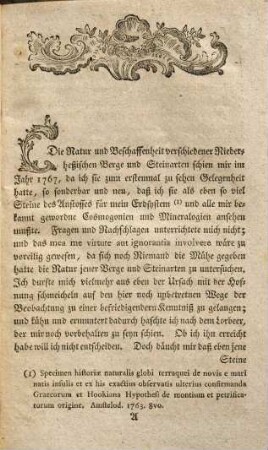 Die Natur und Beschaffenheit verschiedener Nieder-
heßischen Berge und Steinarten schien mir im
Jahr 1767, da ich sie zum erstenmal zu sehen Gelegenheit
hatte, so sonderbar und neu, daß ich sie als eben so viel
Steine des Anstosses für mein Erdsystem (1) und alle mir be-
kannt gewordne Cosmogonien und Mineralogien ansehen
mußte. Fragen und Nachschlagen unterrichtete mich nicht;
und das mea me virtute aut ignorantia involvere wäre zu
voreilig gewesen, da sich noch Niemand die Mühe gegeben
hatte die Natur jener Berge und Steinarten zu untersuchen.
Ich durfte mich vielmehr aus eben der Ursach mit der Hof-
nung schmeicheln auf den hier noch unbetretnen Wege der
Beobachtung zu einer befriedigendern Kenntniß zu gelangen;
und kühn und ermuntert dadurch haschte ich nach dem Lorbeer,
der mir noch vorbehalten zu seyn schien. Ob ich ihn erreicht
habe will ich nicht entscheiden. Doch däucht mir daß eben jene
Steine
(1) Specimen historiæ naturalis globi terraquei de novis e mari
natis insulis et ex his exactius observatis ulterius confirmanda
Graecorum et Hookiana Hypothesi de montium et petrifica-
torum origine. Amstelod. 1763. 8vo.
A